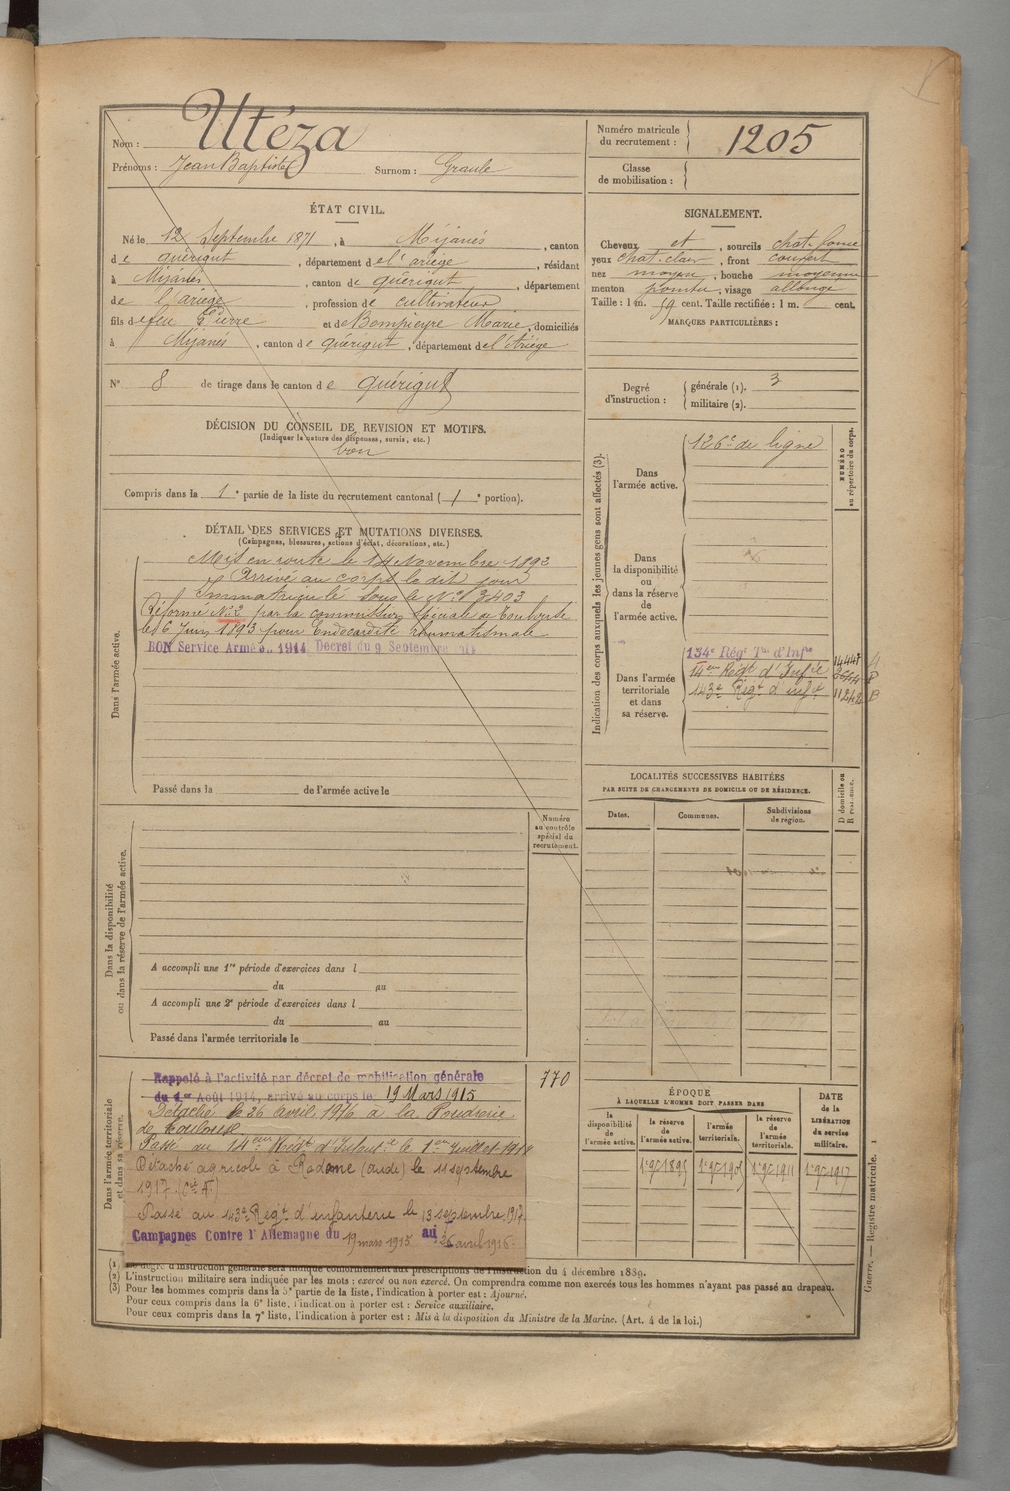 Nom : Utéza
Prénoms : Jean Baptiste Surnom : Graule
Numéro matricule du recrutement : 1205
Classe de mobilisation :
ÉTAT CIVIL.
Né le 12 Septembre 1871, à Mijanès, canton
de quérigut, département de l'ariège, résidant
à Mijanès, canton de quérigut, département
de l'ariège, profession de cultivateur
fils de feu Pierre et de Bompieyre Marie, domiciliés
à Mijanès, canton de quérigut, département de l'Ariège
N° 8 de tirage dans le canton de quérigut
DÉCISION DU CONSEIL DE REVISION ET MOTIFS.
(Indiquer la nature des dispenses, sursis, etc.)
bon
Compris dans la 1e partie de la liste du recrutement cantonal (1e portion).
SIGNALEMENT.
Cheveux et, sourcils chat. fonce
yeux chat. clair, front couvert
nez moyen, bouche moyenne
menton pointu, visage allongé
Taille : 1 m. 59 cent. Taille rectifiée : 1 m. cent.
MARQUES PARTICULIÈRES :
Degré d'instruction : générale (1). 3
militaire (2).
DÉTAIL DES SERVICES ET MUTATIONS DIVERSES.
(Campagnes, blessures, actions d'éclat, décorations, etc.)
Dans l'armée active.
Mis en route le 14 Novembre 1892
Arrivé au corps le dit jour
Immatriculé sous le N° 3403
Réformé N° 2 par la commission spéciale de Toulouse
le 6 Juin 1893 pour Endocardite rhumatismale
BON Service Armé en 1914 Décret du 9 Septembre 1914
Passé dans la de l'armée active le
Indication des corps auxquels les jeunes gens sont affectés (3).
NUMÉRO au répertoire du corps.
Dans l'armée active.
126e de ligne
Dans la disponibilité ou dans la réserve de l'armée active.
Dans l'armée territoriale et dans sa réserve.
134e Régt Tal d'Infie
14eme Régt d'Infie
143e Régt d'infie 11242 B
LOCALITÉS SUCCESSIVES HABITÉES
PAR SUITE DE CHANGEMENTS DE DOMICILE OU DE RÉSIDENCE.
Dates. Communes. Subdivisions de région.
D domicile ou R résidence.
Dans la disponibilité ou dans la réserve de l'armée active.
Numéro au contrôle spécial du recrutement.
A accompli une 1re période d'exercices dans l
du au
A accompli une 2e période d'exercices dans l
du au
Passé dans l'armée territoriale le
Dans l'armée territoriale et dans sa réserve.
770
Rappelé à l'activité par décret de mobilisation générale
du 1er Août 1914, arrivé au corps le 19 Mars 1915
Détaché le 26 avril 1916 à la Poudrerie
de Toulouse.
Passé au 14eme Régt d'Infantie le 1er Juillet 1917
Détaché agricole à Rodome (aude) le 11 septembre
1917 (Cté A)
Passé au 143e Régt d'infanterie le 13 septembre 1917.
Campagnes Contre l'Allemagne du 19 mars 1915 au 26 avril 1916.
ÉPOQUE
À LAQUELLE L'HOMME DOIT PASSER DANS
la disponibilité de l'armée active.
la réserve de l'armée active.
l'armée territoriale.
la réserve de l'armée territoriale.
DATE de la LIBÉRATION du service militaire.
1er 9e 1895 1er 9e 1905 1er 9e 1911 1er 9e 1917
(1) Le degré d'instruction générale sera indiqué conformément aux prescriptions de l'instruction du 4 décembre 1889.
(2) L'instruction militaire sera indiquée par les mots : exercé ou non exercé. On comprendra comme non exercés tous les hommes n'ayant pas passé au drapeau.
(3) Pour les hommes compris dans la 5e partie de la liste, l'indication à porter est : Ajourné.
Pour ceux compris dans la 6e liste, l'indication à porter est : Service auxiliaire.
Pour ceux compris dans la 7e liste, l'indication à porter est : Mis à la disposition du Ministre de la Marine. (Art. 4 de la loi.)
Guerre. — Registre matricule. 1